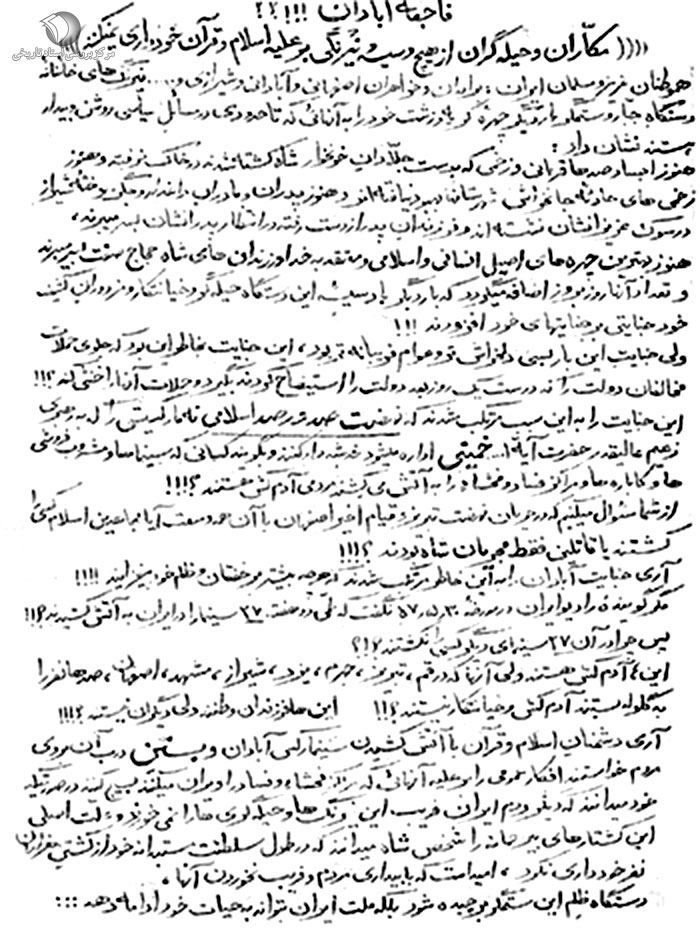 فاجعه آبادان !!!؟؟
مرکز بررسی اسناد تاریخی
(((( مکاران و حیله گران از هیچ دسیسه و نیرنگی بر علیه اسلام و قرآن خودداری نمیکنند
هموطنان عزیز و مسلمان ایران : برادران و خواهران اصفهانی و آبادانی و شیرازی و .... نیرنگ های خائنانه
دستگاه جبار و ستمگر بار دیگر چهره کریه و زشت خود را به آنهائی که تا حدودی در مسائل سیاسی روشن و بیدار
هستند نشان داد :
هنوز اجساد صدها قربانی و زخمی که بدست جلادان خونخوار شاه کشته شدند در خاک نرفته و هنوز
زخمی های حادثه جانخراش شهرستان بهبود نیافته اند و هنوز پدران و مادران
در سوک عزیزانشان نشسته اند و فرزندان پدر از دست رفته در انتظار پدرانشان بسر میبرند ،
هنوز بهترین چهره های اصیل انسانی و اسلامی و معتقد به خدا در زندان های شاه حجاج صفت بسر میبرند
و تعداد آنها روز بروز اضافه میگردد که بار دگر با دسیسه این دستگاه حیله گر و خیانتکار و مزدوران کثیف
خود جنایتی بر جنایتهای خود افزودند !!!
ولی جنایت این بار بسی دلخراش تر و عوام فریبانه تر بود ، این جنایت بخاطر این بود که جلوی حملات
مخالفان دولت را که درست یک روز بعد دولت را استیضاح کردند بگیرد و حملات آنها را خنثی کند ؟!!!
این جنایت را به این سبب مرتکب شدند که نهضت صد در صد اسلامی نه مارکسیستی را که به رهبری
زعیم عالیقدر حضرت آیة ا... خمینی اداره میشود خدشه دار کنند و بگویند کسانی که سینماها و مشروب فروشی
ها و کاباره ها و مراکز فساد و فحشاء را به آتش می کشند مردمی آدم کش هستند ؟!!!
از شما سئوال میکنم که در جریان نهضت تبریز و قیام اخیر اصفهان با آن همه وسعت آیا مجاهدین اسلام کسی را
کشتند یا قاتلین فقط مجریان شاه بودند ؟!!!
آری جنایت آبادان را به این خاطر مرتکب شدند که هر چه بیشتر بر خفقان و ظلم خود بیفزایند !!!!
مگر گوینده رادیو ایران در مورخه ۵۷،۵،۳۰ نگفت که طی دو هفته ۲۷ سینما را در ایران به آتش کشیدند ؟!!!
پس چرا در آن ۲۷ سینمای دیگر کسی را نکشتند ؟!؟
اینها آدم کش هستند ولی آنها که در قم ، تبریز ، جهرم ، یزد ، شیراز ، مشهد ، اصفهان ، صدها نفر را
به گلوله بستند آدم کش و جنایتکار نیستند ؟!!! این ها فرزندان وطنند ولی دیگران نیستند ؟!!!
آری دشمنان اسلام و قرآن با آتش کشیدن سینما رکس آبادان و بستن درب آن بروی
مردم خواستند افکار عمومی را بر علیه آنهائی که مراکز فحشاء و فساد را ویران میکنند بسیج کنند در صورتیکه
خود میدانند که دیگر مردم ایران فریب این نیرنگ ها و حیله گری ها را نمی خورند و علت اصلی
این کشتارهای بیرحمانه را شخص شاه میدانند که در طول سلطنت مستبدانه خود از کشتن هزاران
نفر خودداری نکرد ، امید است که با بیداری مردم و فریب نخوردن آنها ،
دستگاه ظلم این ستمگر برچیده شود بلکه ملت ایران بتواند به حیات خود ادامه دهد :::